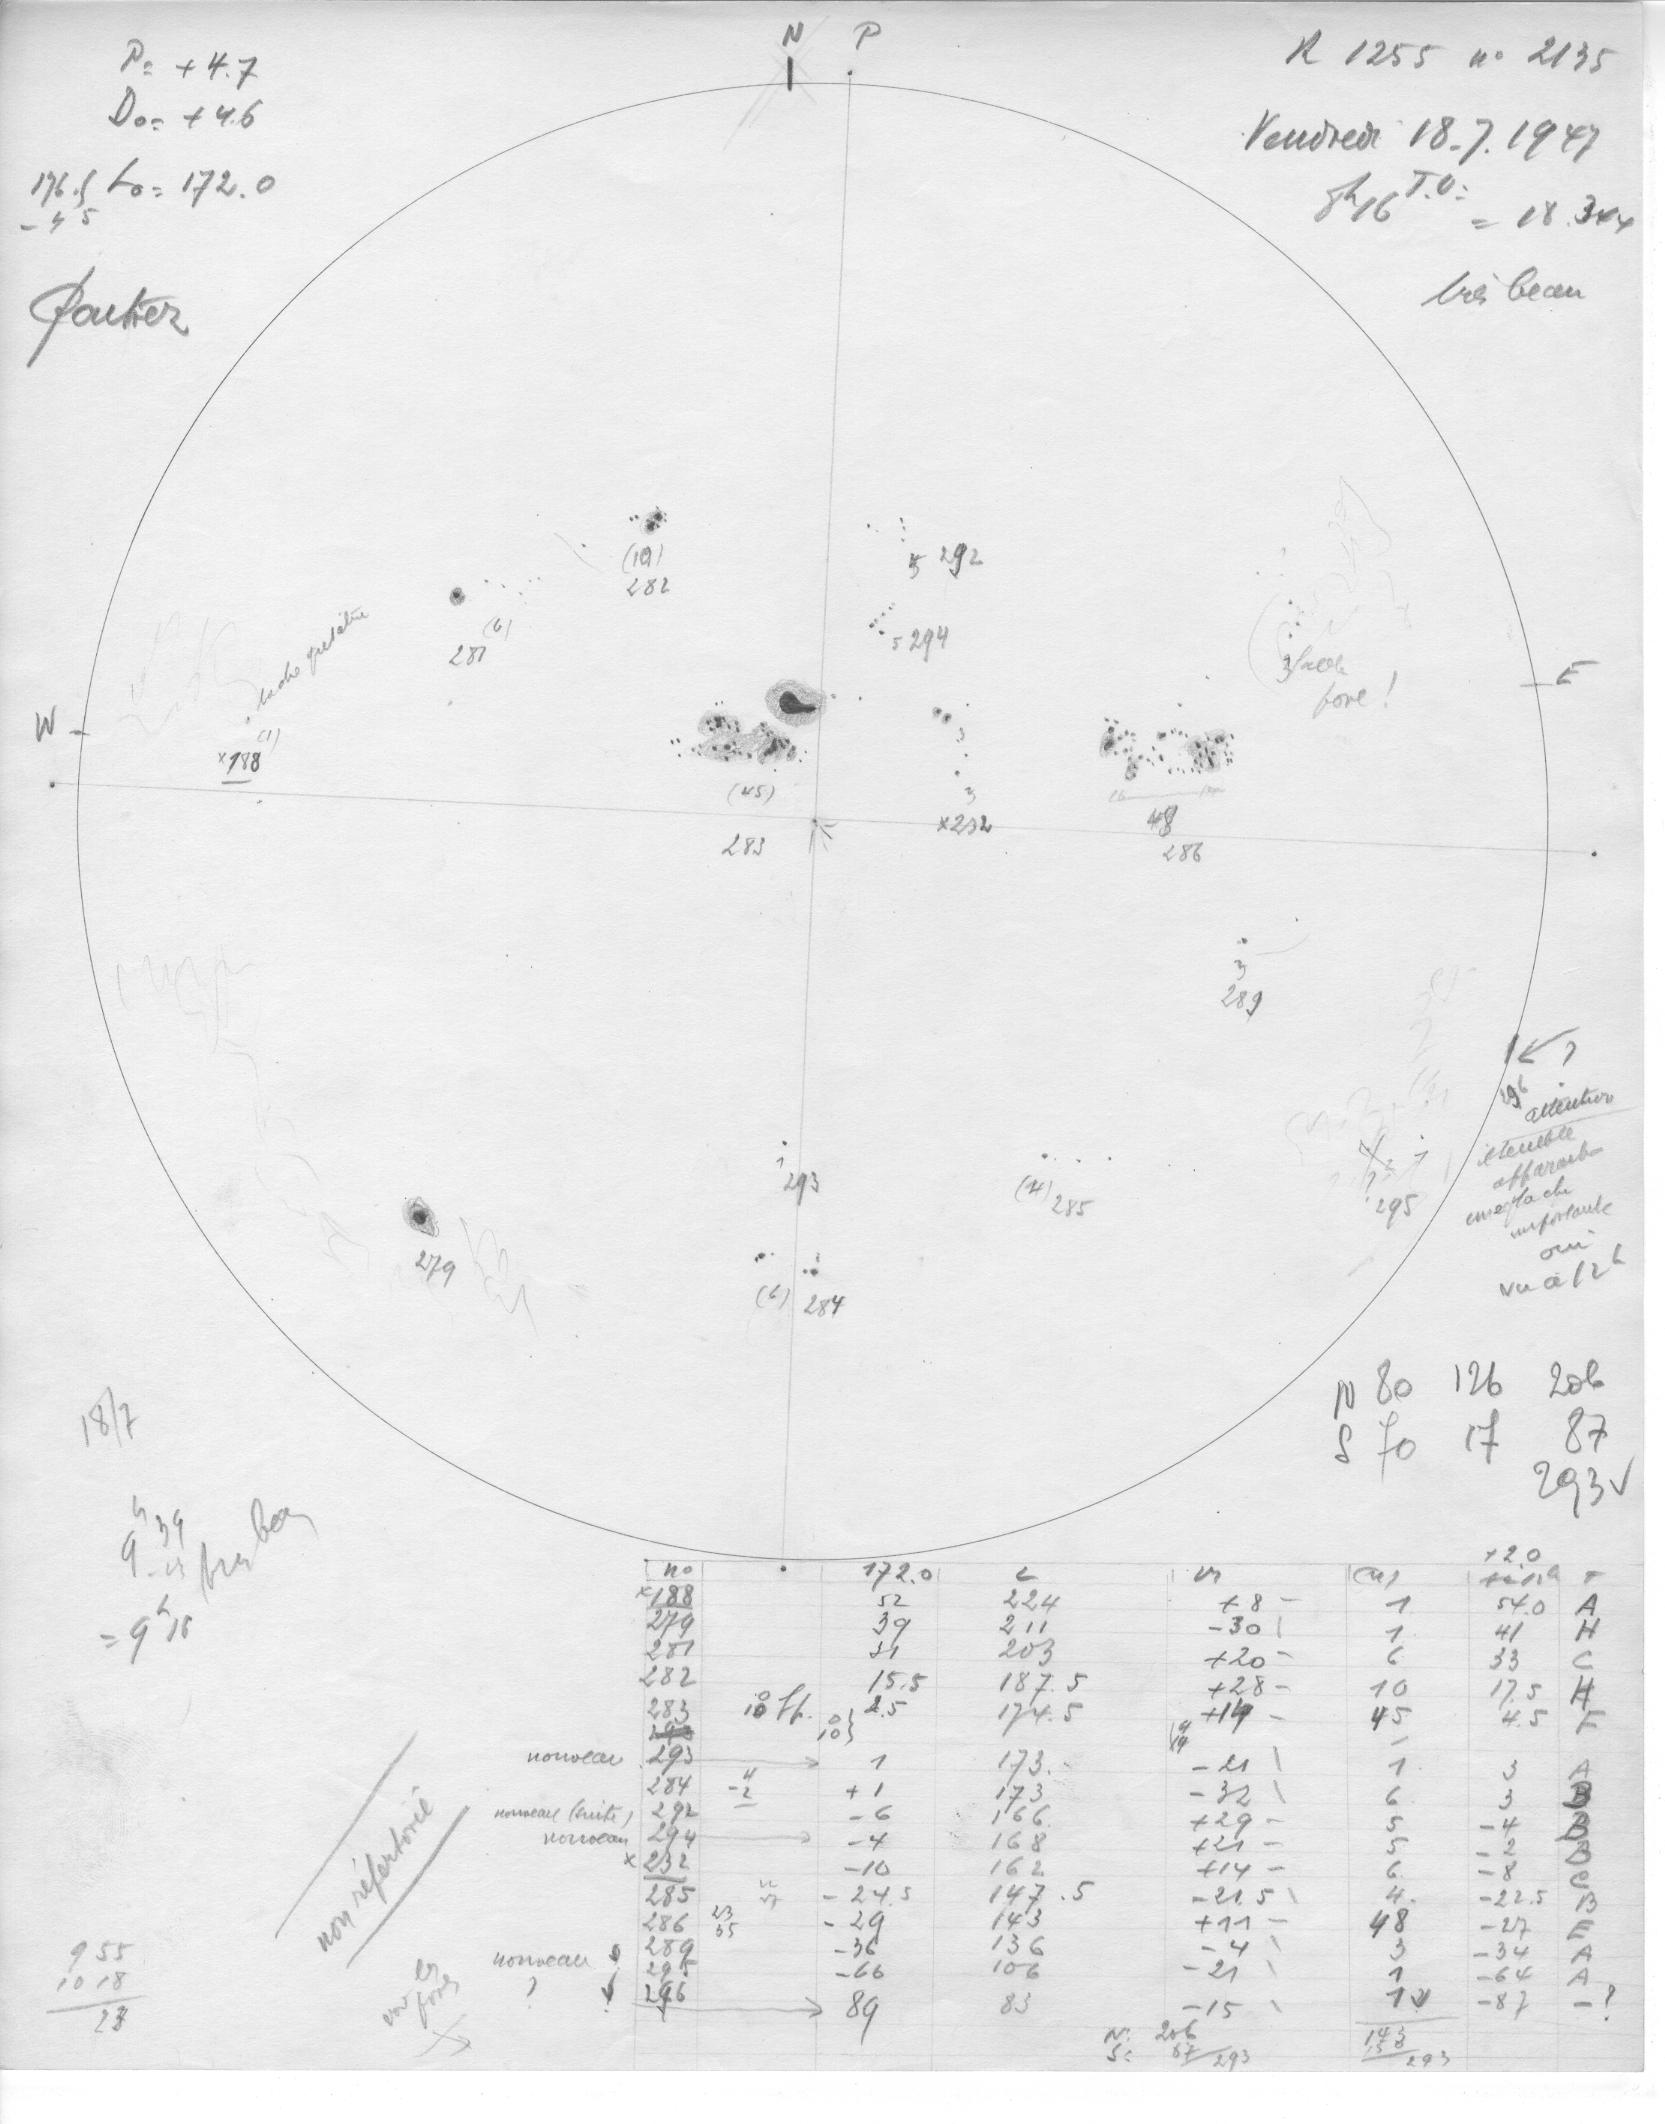 N P
P= +4.7
Do= +4.6
176.5 Lo= 172.0
-4 5
Gautier
R 1255 no 2135
Vendredi 18.7.1947
8h16 T.U.
= 18.344
très beau
(10)
282
5 292
(6)
281
5 294
3 facule
fove!
E
W
(1)
x188
(45)
283
3
3
x232
48
286
3
289
296
attention
il semble
apparaitre
une tache
importante
oui
vu à 12h
1
293
(4) 285
1
295
279
(6) 284
N 80 126 206
S 70 17 87
293√
18/7
9h39
= 9h16
no 172.0 L
+2.0
x188 52 224 +8 - 1 54.0 A
279 39 211 -30 \ 1 41 H
281 31 203 +20 - 6 33 C
282 15.5 187.5 +28 - 10 17.5 H
283 2.5 174.5 +14 - 45 4.5 F
nouveau 293 1 173. -21 \ 1 3 A
284 +1 173 -32 \ 6 3 B
nouveau (suite) 292 -6 166 +29 - 5 -4 B
nouveau 294 -4 168 +21 - 5 -2 B
x 232 -10 162 +14 - 6 -8 C
285 -24.5 147.5 -21.5 \ 4 -22.5 B
286 23 35 -29 143 +11 - 48 -27 E
289 -36 136 -4 \ 3 -34 A
nouveau 295 -66 106 -21 \ 1 -64 A
? 296 89 83 -15 \ 1 -87 -?
N: 206
S: 87/293
143
150 293
non répertorié
9 55
10 18
23